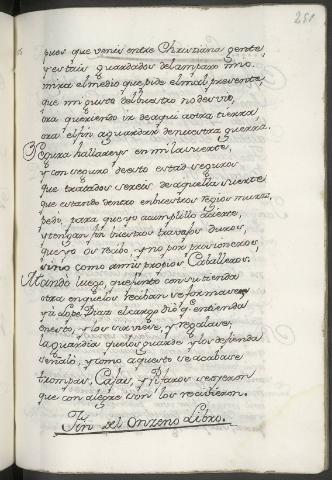 251
pues que venis entre Christiana gente,
y estais guardados del amparo mio.
mira el medio que pide el mal presente,
que mi gusto del vuestro no desvio,
ora queriendo ir de aqui a otra tierra,
ora el fin aguardar de nuestra guerra.
Segura hallareys en mi la suerte,
y con seguro de esto estad seguros
que tratados sereis de aquella suerte
que estando dentro en vuestros regios muros,
pedi, para que yo a cumplillo acierte,
y tengan fin vuestros trabajos duros,
que yo os recibo, y no por prisioneros,
sino como a mis propios Caballeros.
Mandò luego, que junto con su tienda
otra en que los reciban se formase,
y a Lope Diaz el cargo dio q entienda
en esto, y los sirviese, y regalase,
la guardia que los guarde y los defienda
señalò, y como aquesto se acabase
trompas, Cajas, y Pifaros vinieron
que con alegre son los recibieron.
Fin del Onzeno Libro.